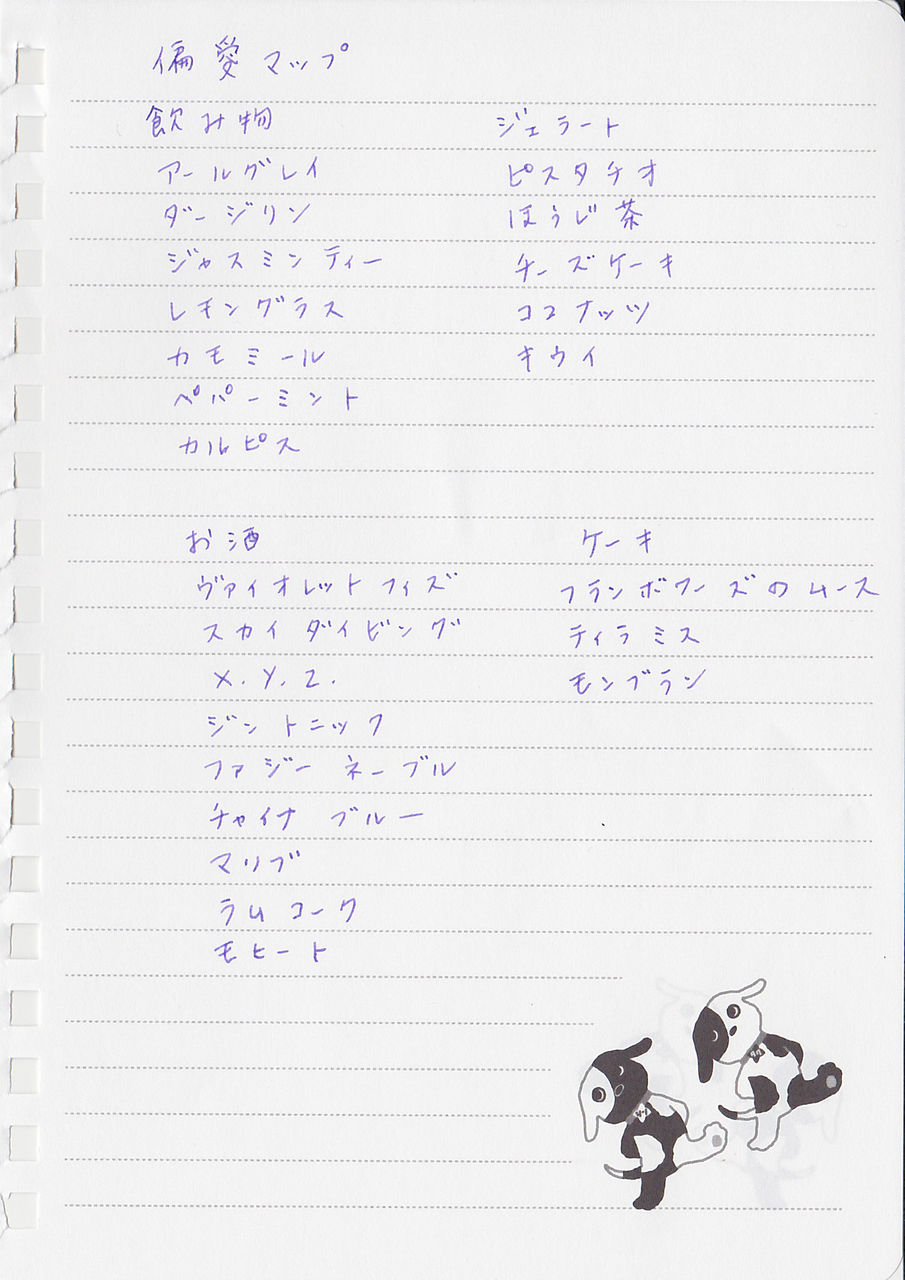 偏愛マップ
飲み物
アールグレイ
ダージリン
ジャスミンティー
レモングラス
カモミール
ペパーミント
カルピス
ジェラート
ピスタチオ
ほうじ茶
チーズケーキ
ココナッツ
キウイ
お酒
ヴァイオレットフィズ
スカイダイビング
X.Y.Z.
ジントニック
ファジーネーブル
チャイナブルー
マリブ
ラムコーク
モヒート
ケーキ
フランボワーズのムース
ティラミス
モンブラン